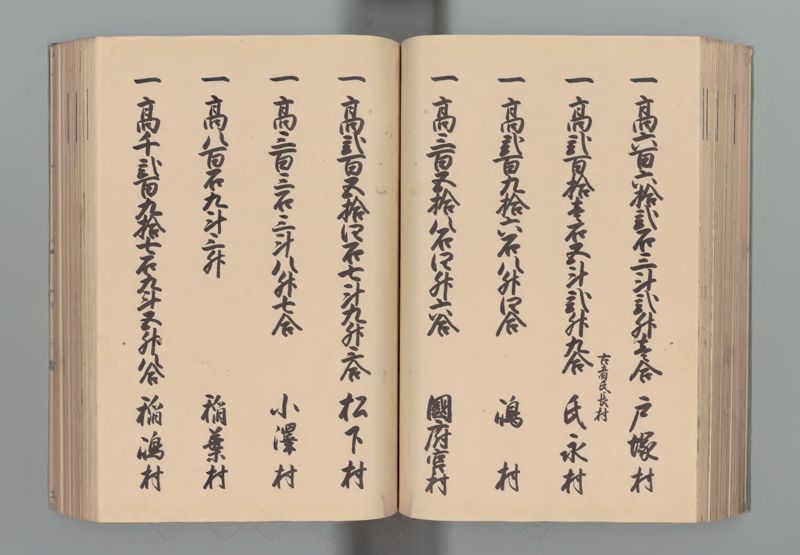 一高六百六拾弐石三斗弐升壱合 戸塚村
一高弐百拾壱石五斗弐升九合 氏永村
古者氏長村
一高弐百九拾六石八升四合 嶋村
一高三百五拾八石四升六合 國府宮村
一高弐百五拾四石七斗九升三合 松下村
一高三百三石三斗八升七合 小澤村
一高八百石九斗三升 稲葉村
一高千弐百九拾七石九斗五升八合 稲嶋村